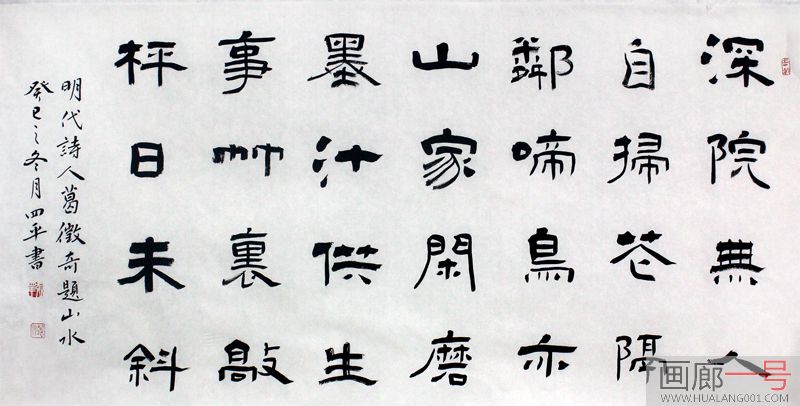 深院無人
自掃花隔
鄰啼鳥亦
山家閑磨
墨汁供生
事竹裏敲
枰日未斜
明代詩人葛徵奇題山水
癸巳之冬月四平書
画廊一号
WWW.HUALANG001.COM